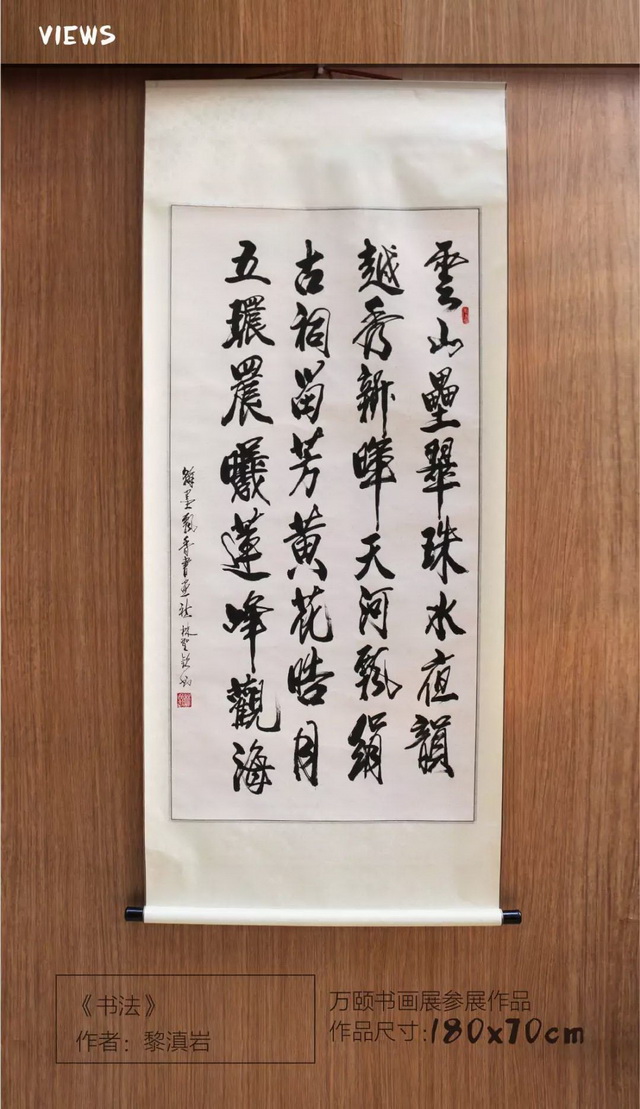 VIEWS
雲山壘翠珠水夜韻
越秀新暉天河飄絹
古祠留芳黄花皓月
五環晨曦蓮峰觀海
翰墨飄香書
《书法》
作者：黎滇岩
万颐书画展参展作品
作品尺寸:180x70cm